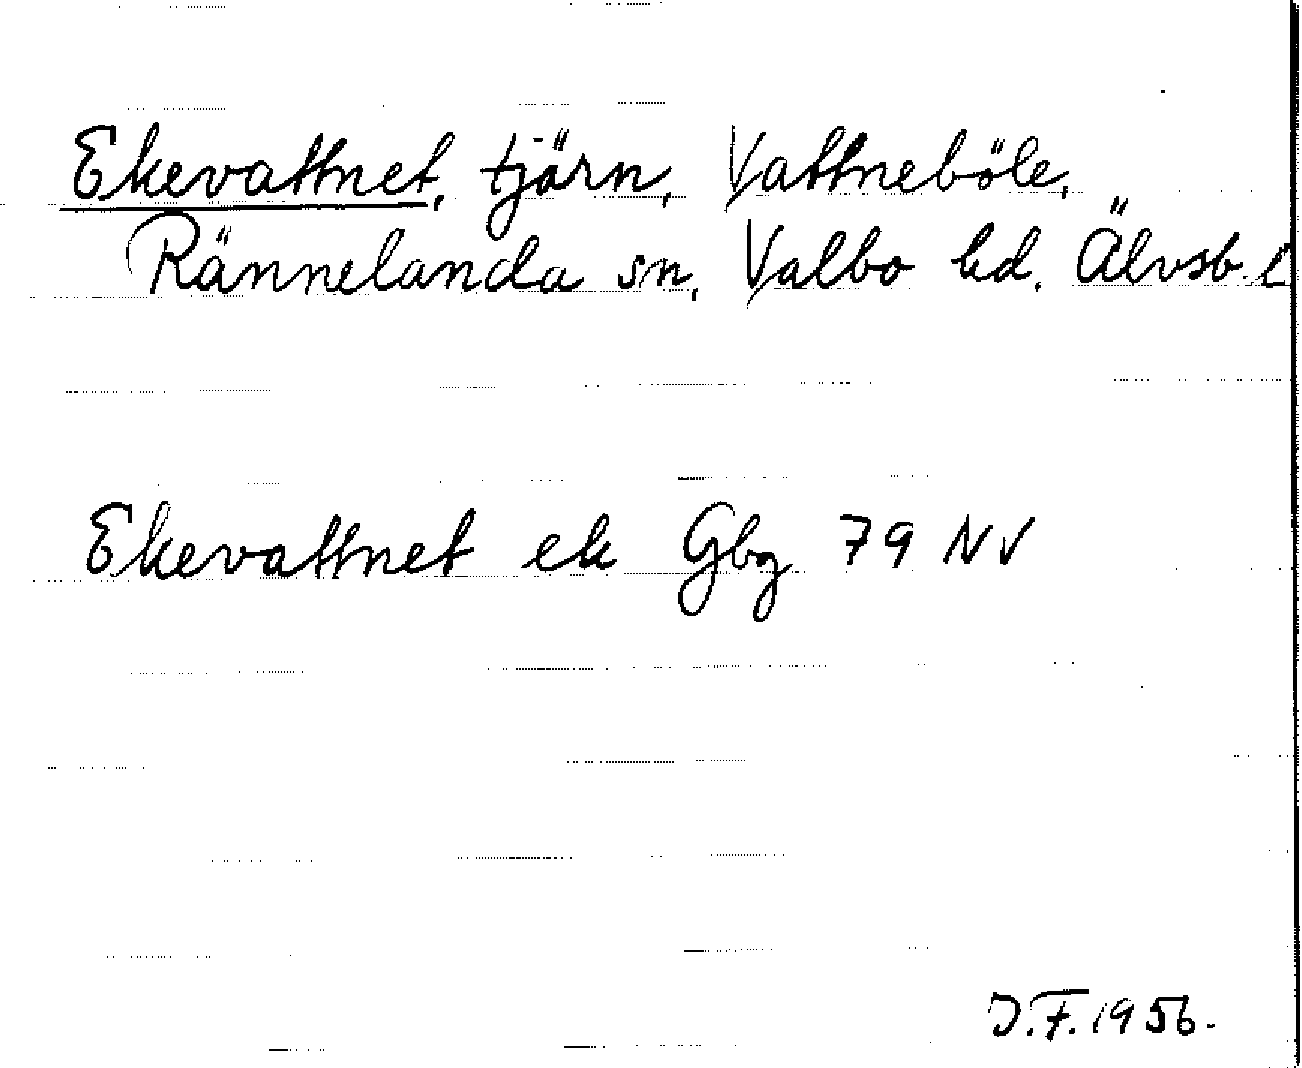 Ekevattnet, tjärn, Vattneböle,
Rännelanda sn, Valbo hd. Älvsb. l
Ekevattnet ek Gbg 79 NV
J.F. 1956.